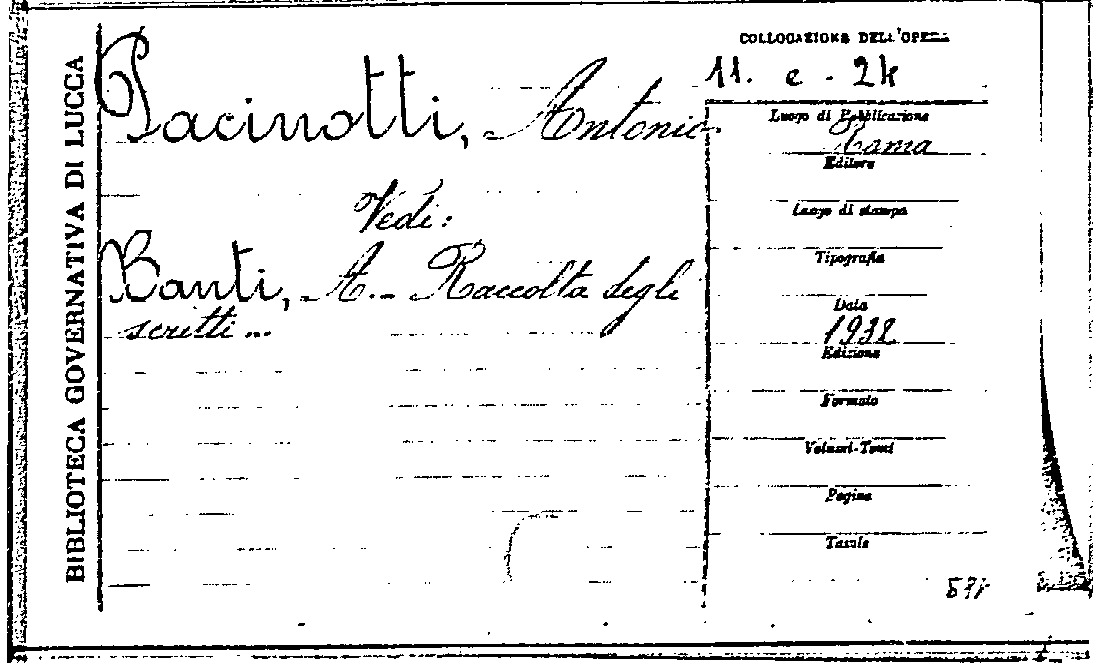 BIBLIOTECA GOVERNATIVA DI LUCCA
Pacinotti, Antonio.
Vedi:
Banti, A. - Raccolta degli
scritti ...
COLLOCAZIONE DELL'OPERA
11. e - 2k
Luogo di Pubblicazione
Roma
Editore
Luogo di stampa
Tipografia
Data
1932
Edizione
Formato
Volumi-Tomi
Pagine
Tavole